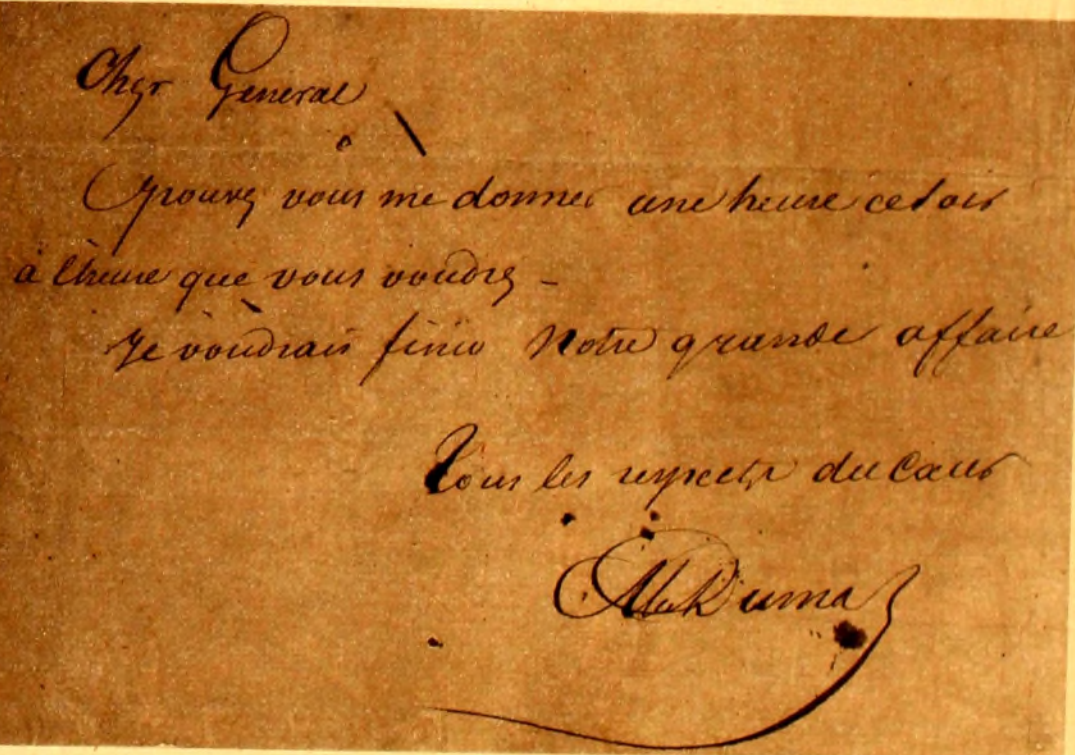 Cher General
pouvez vous me donner une heure ce soir
à l'heure que vous voudrez -
Je voudrais finir Notre grande affaire
Tous les respects du cœur
Alex Dumas